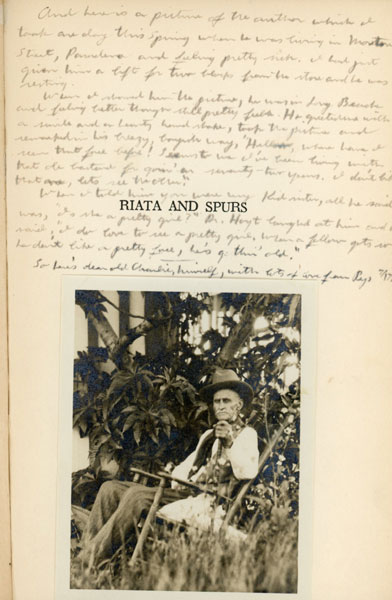 And here is a picture of the author which I
took one day this Spring when he was living in
Street, Pasadena and feeling pretty sick. I had just
given him a lift for two blocks from the store and he was
resting.
When I showed him the picture, he was in Long Beach
and feeling better though still pretty feeble. He greeted me with
a smile and a hearty hand shake, took the picture and
remarked in his breezy, way, "Hell, where have I
seen that face before! I I've been living with
that old for on seventy two years. I don't
that one, let's see the other."
When I told him you were my Kid sister, all he said
was, "Is she a pretty girl?" Dr. Hoyt laughed at him and he
said, "I do love to see a pretty girl, when a fellow gets so
he don't like a pretty face, he's old."
RIATA AND SPURS
So here's dear old Charlie, himself, with lots of love from